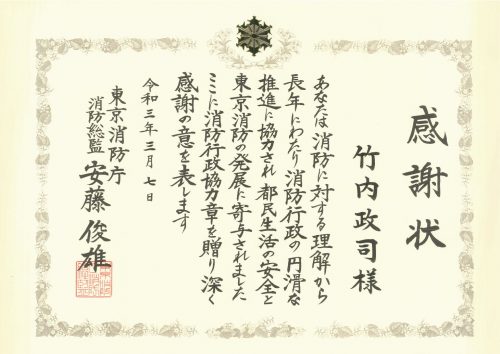 感謝状
竹内政司様
あなたは消防に対する理解から
長年にわたり消防行政の円滑な
推進に協力され都民生活の安全と
東京消防の発展に寄与されました
ここに消防行政協力章を贈り深く
感謝の意を表します
令和三年三月七日
東京消防庁
消防総監 安藤俊雄